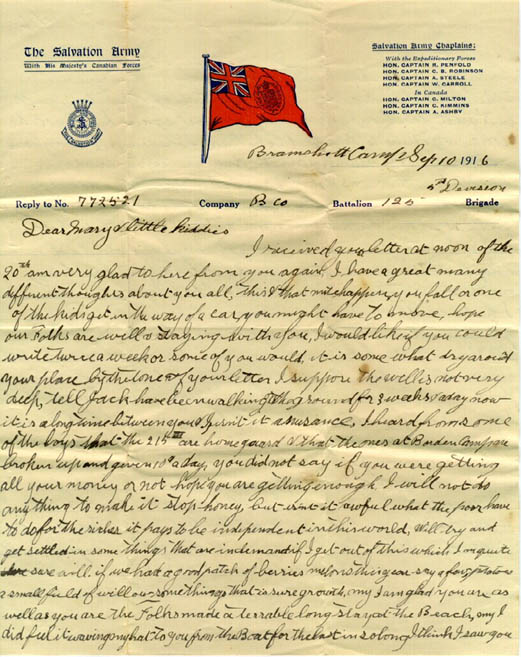 The Salvation Army
With His Majesty's Canadian Forces
Salvation Army Chaplains:
With the Expeditionary Forces
HON. CAPTAIN R. PENFOLD
HON. CAPTAIN C. B. ROBINSON
HON. CAPTAIN A. STEELE
HON. CAPTAIN W. CARROLL
In Canada
HON. CAPTAIN G. MILTON
HON. CAPTAIN G. KIMMINS
HON. CAPTAIN A. ASHBY
Bramshott Camp Sep 10 1916
5th Devision
Reply to No. 772521 Company B Co Battalion 125 Brigade
Dear Mary & little kiddies
I received your letter at noon of the
20th am very glad to here from you again, I have a great many
different thoughts about you all, this & that mite happen, you fall or one
of the kids get in the way of a car, you might have to move, hope
our Folks are well & staying with you, I would like if you could
write twice a week or some of you would, it is some what dry around
your place by the tone of your letter I suppose the well is not very
deep, tell Jack have been walking the ground for 3 weeks a day now
it is a long time between you & I isn't it I heard from some
of the boys that the 215th are home guard & that the ones at Borden Camp are
broken up and given 10c a day, you did not say if you were getting
all your money or not hope you are getting enough I will not do
anything to make it stop honey, but isnt it awful what the poor have
to do for the riches it pays to be independent in this world, Will try and
get settled in some things that are in demand if I get out of this which I am quite
sure will if we had a good patch of berries melons this year say a few potatoes
a small field of willow some things that is sure growth, my I am glad you are as
well as you are the Folks made a terrable long stay at the Beach, my I
did ful it waving my hat to you from the Boat for the last in so long I think I saw you